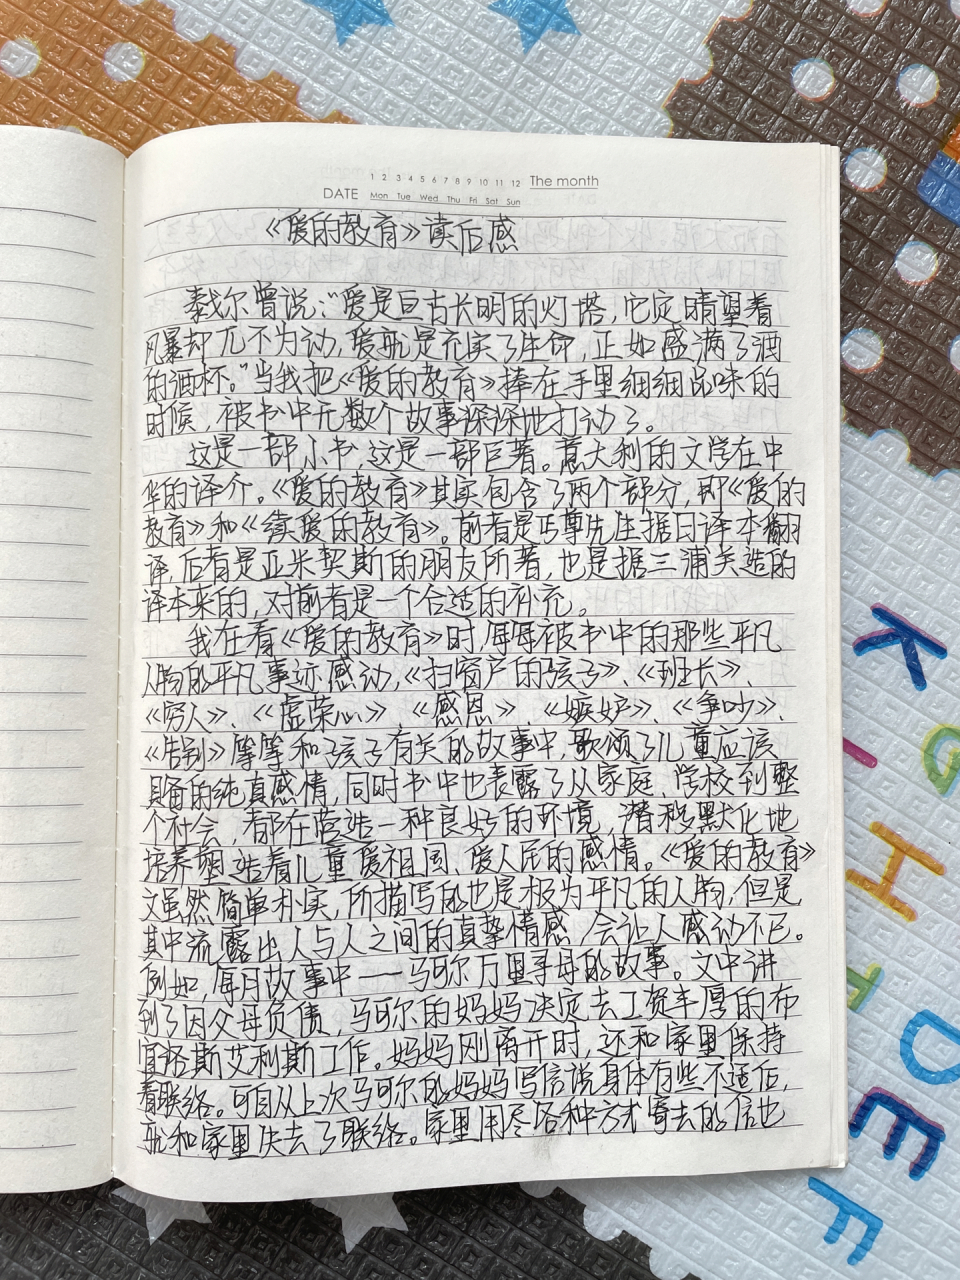 1 2 3 4 5 6 7 8 9 10 11 12 The month
DATE Mon Tue Wed Thu Fri Sat Sun
《爱的教育》读后感
泰戈尔曾说:“爱是亘古长明的灯塔,它定晴望着
风暴却兀不为动,爱就是充实了生命,正如盛满了酒
的酒杯。”当我把《爱的教育》捧在手里细细品味的
时候,被书中无数个故事深深地打动了。
这是一部小书,这是一部巨著。意大利的文学在中
华的译介。《爱的教育》其实包含了两个部分,即《爱的
教育》和《续爱的教育》。前者是丐尊先生据日译本翻
译,后者是亚米契斯的朋友所著,也是据三浦关造的
译本来的,对前者是一个合适的补充。
我在看《爱的教育》时,每每被书中的那些平凡
人物的平凡事迹感动,《扫窗户的孩子》、《班长》、
《穷人》、《虚荣心》、《感恩》、《嫉妒》、《争吵》、
《告别》等等和孩子有关的故事中,歌颂了儿童应该
具备的纯真感情,同时书中也表露了从家庭、学校到整
个社会,都在营造一种良好的环境,潜移默化地
培养塑造着儿童爱祖国、爱人民的感情。《爱的教育》
文虽然简单朴实,所描写的也是极为平凡的人物,但是,
其中流露出人与人之间的真挚情感,会让人感动不已。
例如,每月故事中——马可尔万里寻母的故事。文中讲
到了因父母负债,马可尔的妈妈决定去工资丰厚的布
宜诺斯艾利斯工作。妈妈刚离开时,还和家里保持
着联络。可自从上次马可尔的妈妈写信说身体有些不适后,
就和家里失去了联络。家里用尽各种方式寄去的信也
K
G
I
H
T
I
DEF
F